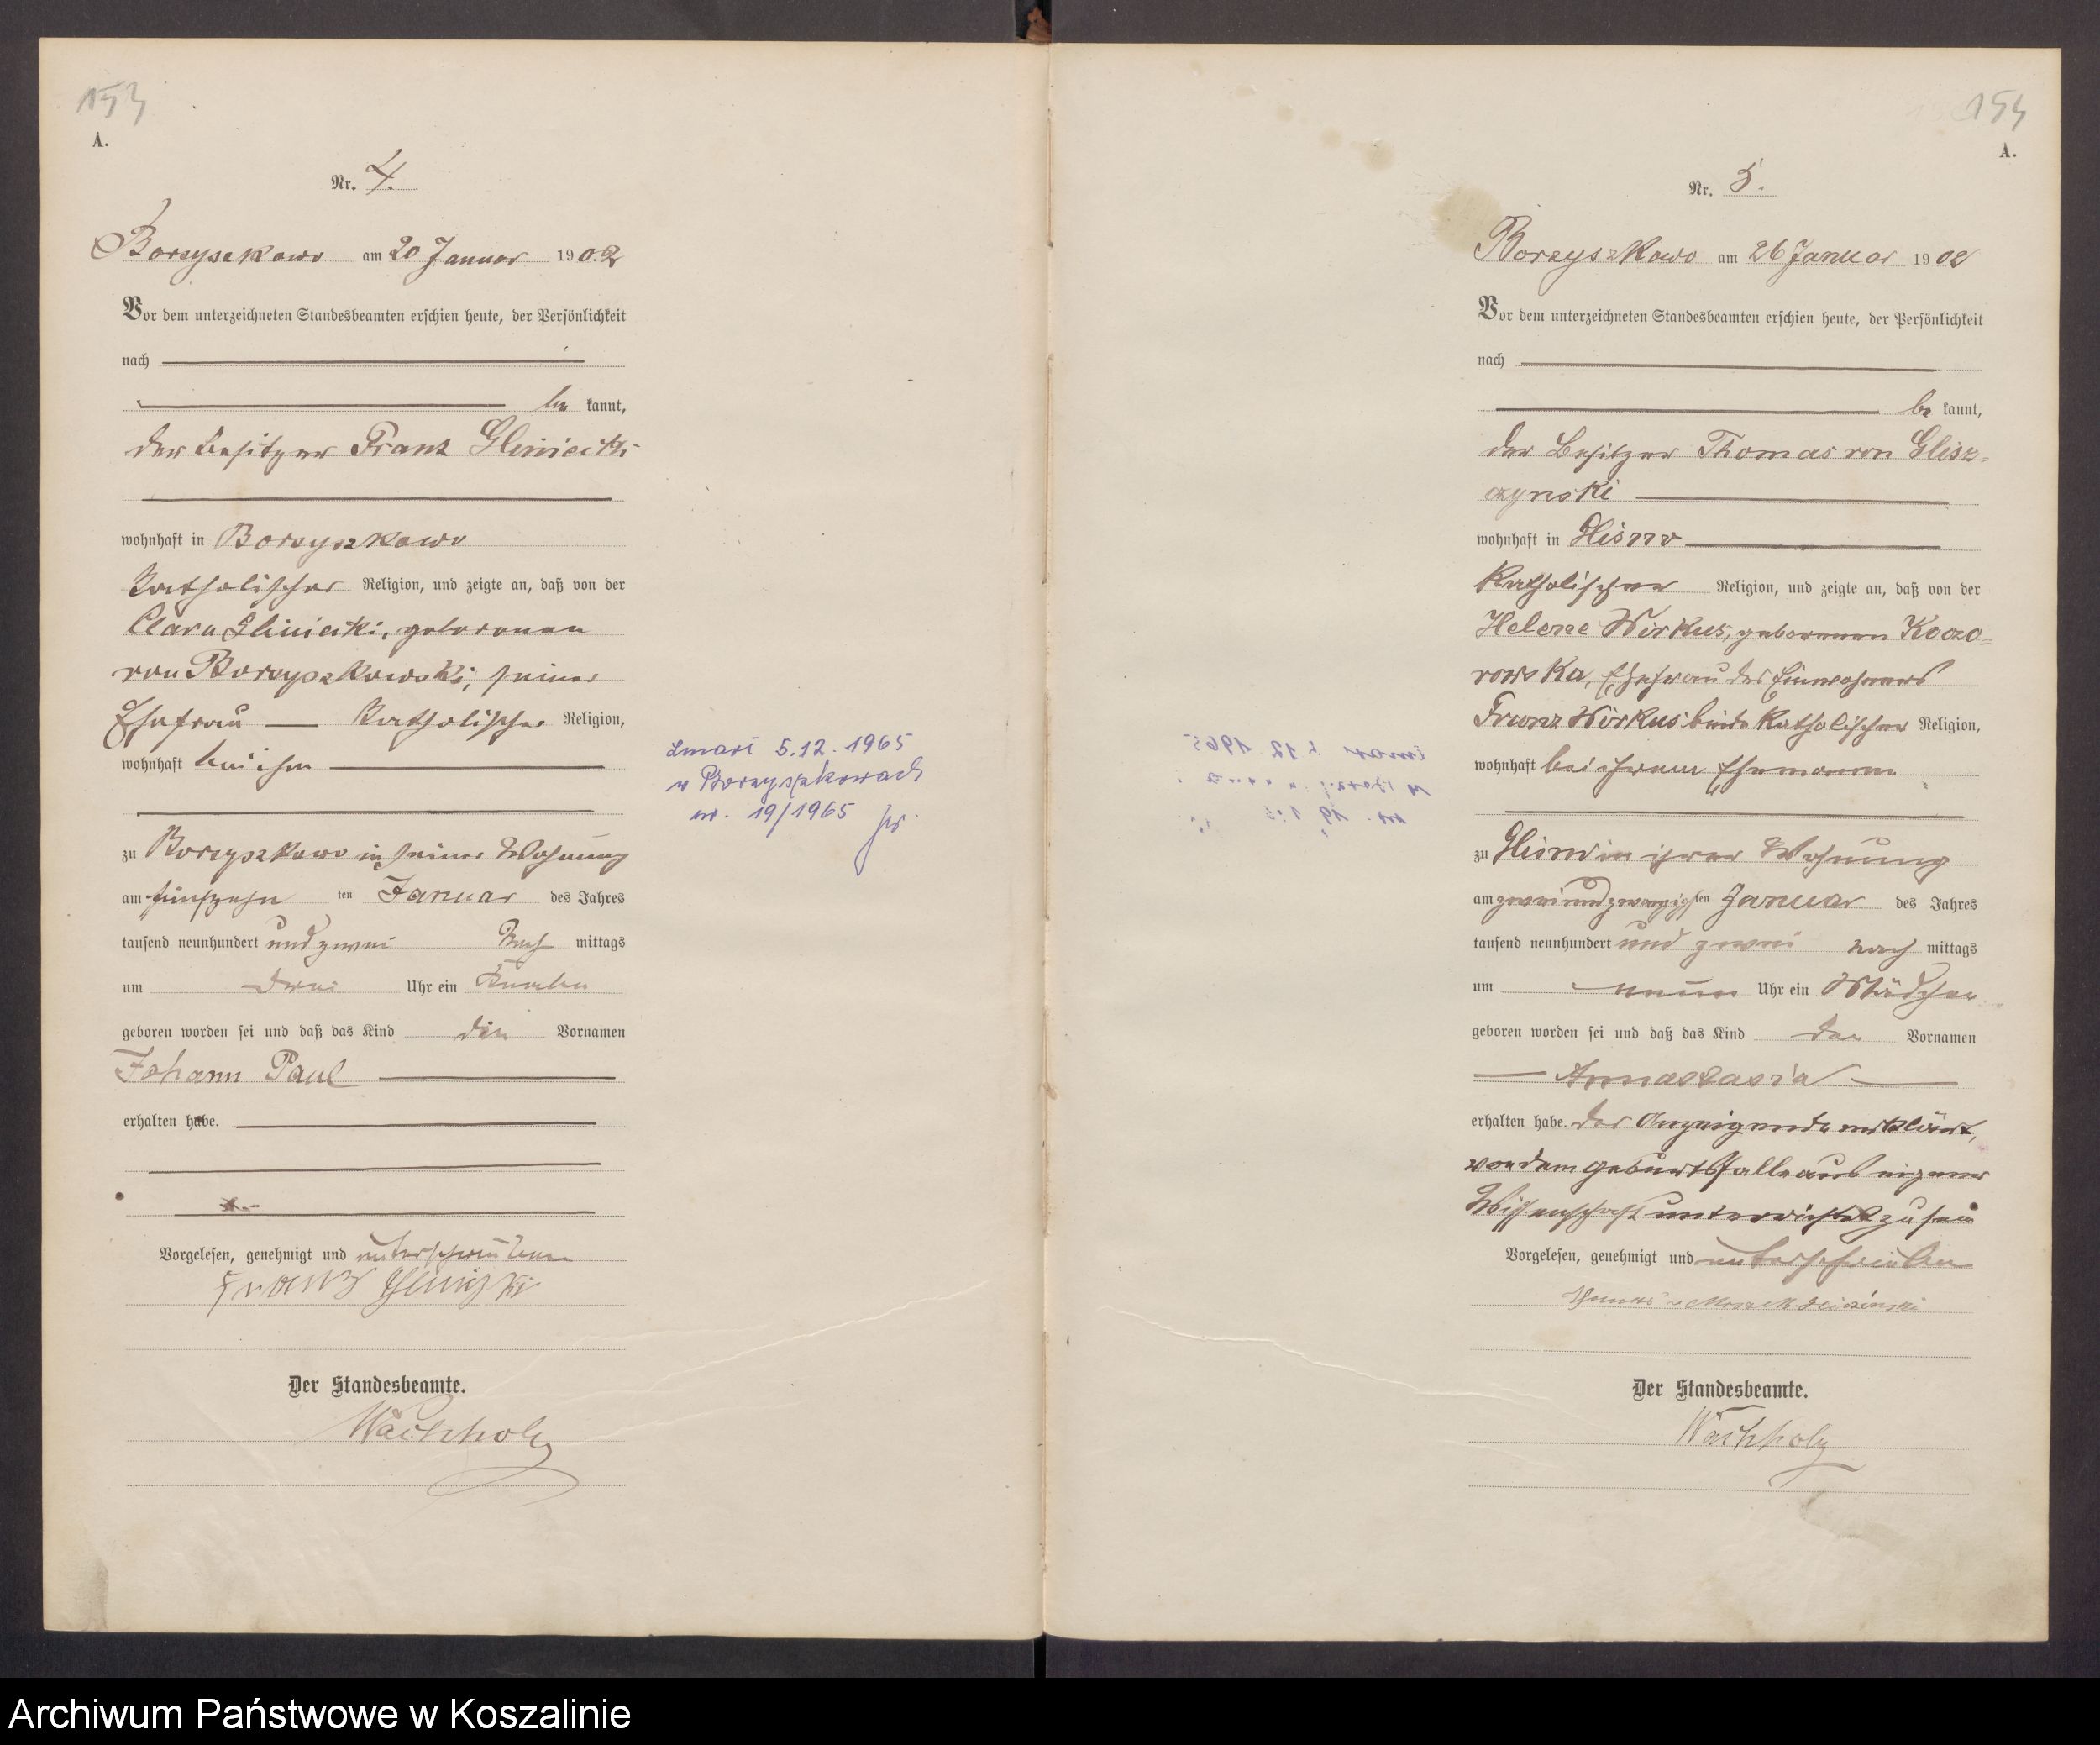 153
A.
Nr. 4.
Borzyszkowo am 20 Januar 1902
Vor dem unterzeichneten Standesbeamten erschien heute, der Persönlichkeit
nach
be kannt,
der Besitzer Franz Gliniecki
wohnhaft in Borzyszkowo
katholischer Religion, und zeigte an, daß von der
Clara Gliniecki, geborenen
von Borzyszkowski, seiner
Ehefrau — katholischer Religion,
wohnhaft bei ihm
zu Borzyszkowo in seiner Wohnung
am fünfzehn ten Januar des Jahres
tausend neunhundert und zwei Nach mittags
um drei Uhr ein Knabe
geboren worden sei und daß das Kind die Vornamen
Johann Paul
erhalten habe.
Vorgelesen, genehmigt und unterschrieben
Franz Glinizki
Der Standesbeamte.
Wachholz
zmarł 5.12.1965
w Borzyszkowach
nr. 19/1965
154
A.
Nr. 5.
Borzyszkowo am 26 Januar 1902
Vor dem unterzeichneten Standesbeamten erschien heute, der Persönlichkeit
nach
be kannt,
der Besitzer Thomas von Glisz-
czynski
wohnhaft in Glisno
katholischer Religion, und zeigte an, daß von der
Helene Wirkus, geborenen
Ehefrau des Einwohners
Franz Wirkus beide katholischer Religion,
wohnhaft bei ihrem Ehemanne
zu Glisno in ihrer Wohnung
am zweiundzwanzigsten Januar des Jahres
tausend neunhundert und zwei nach mittags
um neun Uhr ein Mädchen
geboren worden sei und daß das Kind den Vornamen
— Annastasia —
erhalten habe. Der Anzeigende erklärt,
von dem Geburtsfalle aus eigener
Wissenschaft unterrichtet zu sein
Vorgelesen, genehmigt und unterschrieben
Der Standesbeamte.
Wachholz
Archiwum Państwowe w Koszalinie